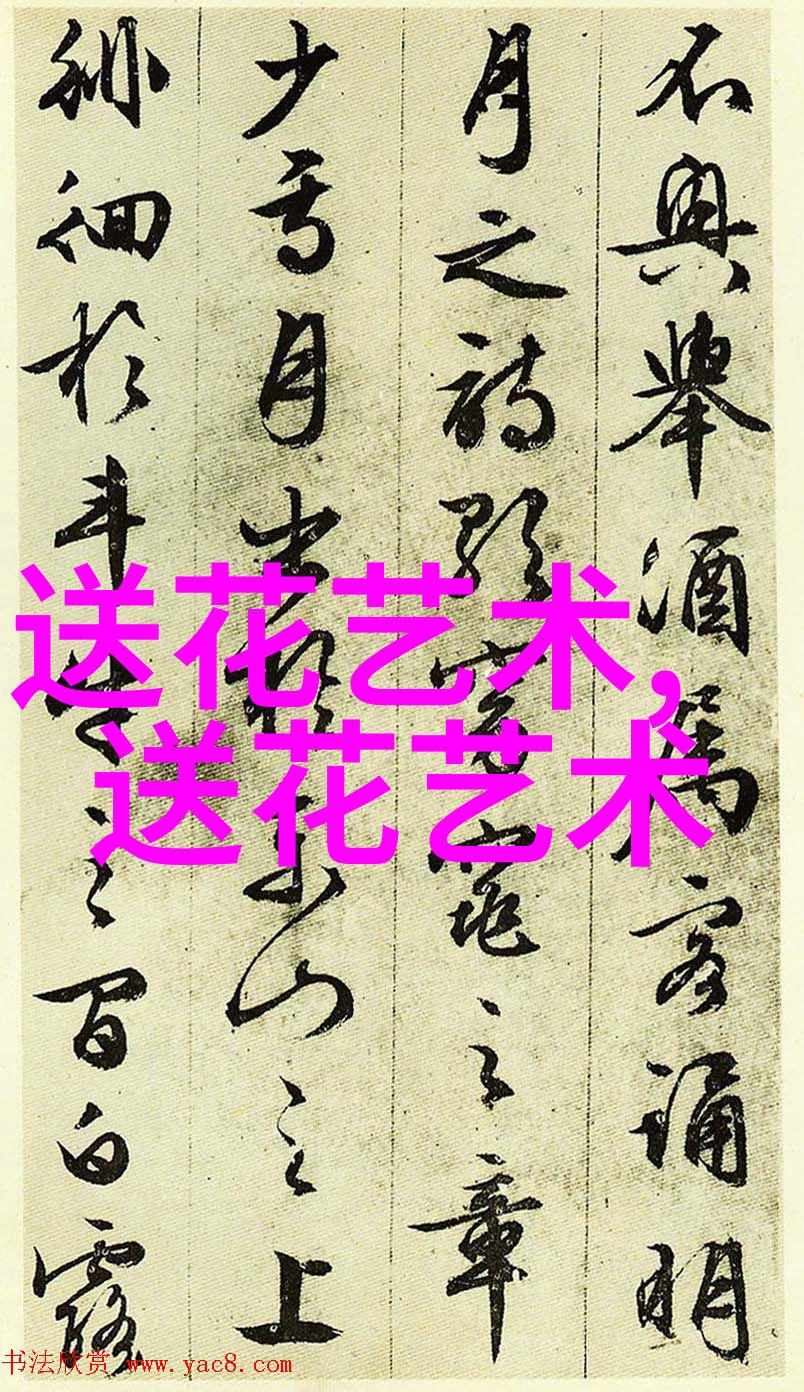 不興舉酒屬客誦明
月之詩歌窈窕之章
少焉月出於東山之上
徘徊於斗牛之間白露
送花艺术,
送花艺术
书法欣赏 www.yac8.com